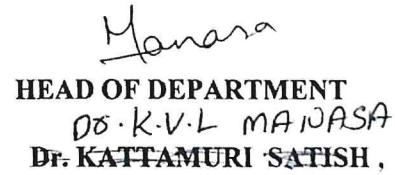 Manasa
HEAD OF DEPARTMENT
Dr. K.V.L MANASA
Dr. KATTAMURI SATISH,